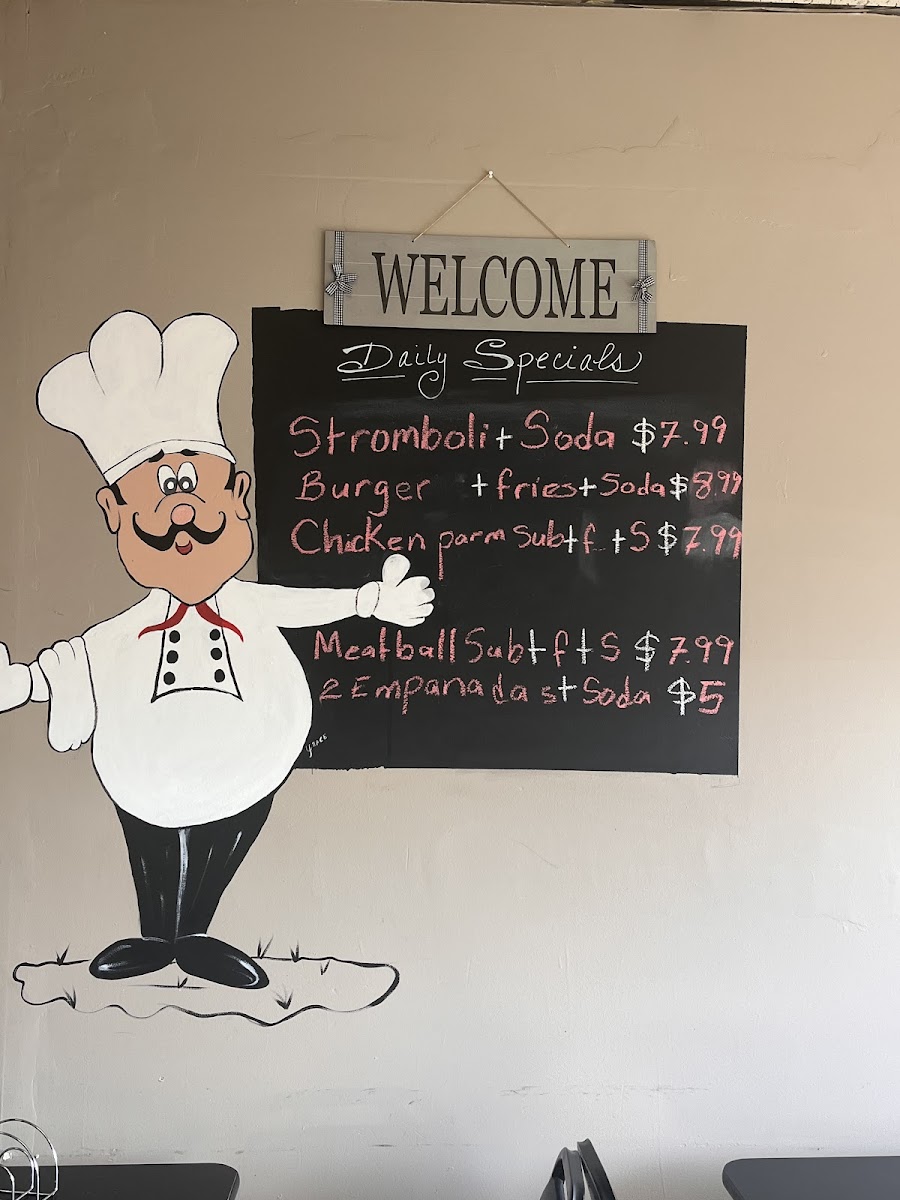 WELCOME
Daily Specials
Stromboli + Soda $7.99
Burger + fries + Soda $8.99
Chicken parm Sub + f + S $7.99
Meatball Sub + f + S $7.99
2 Empanadas + Soda $5